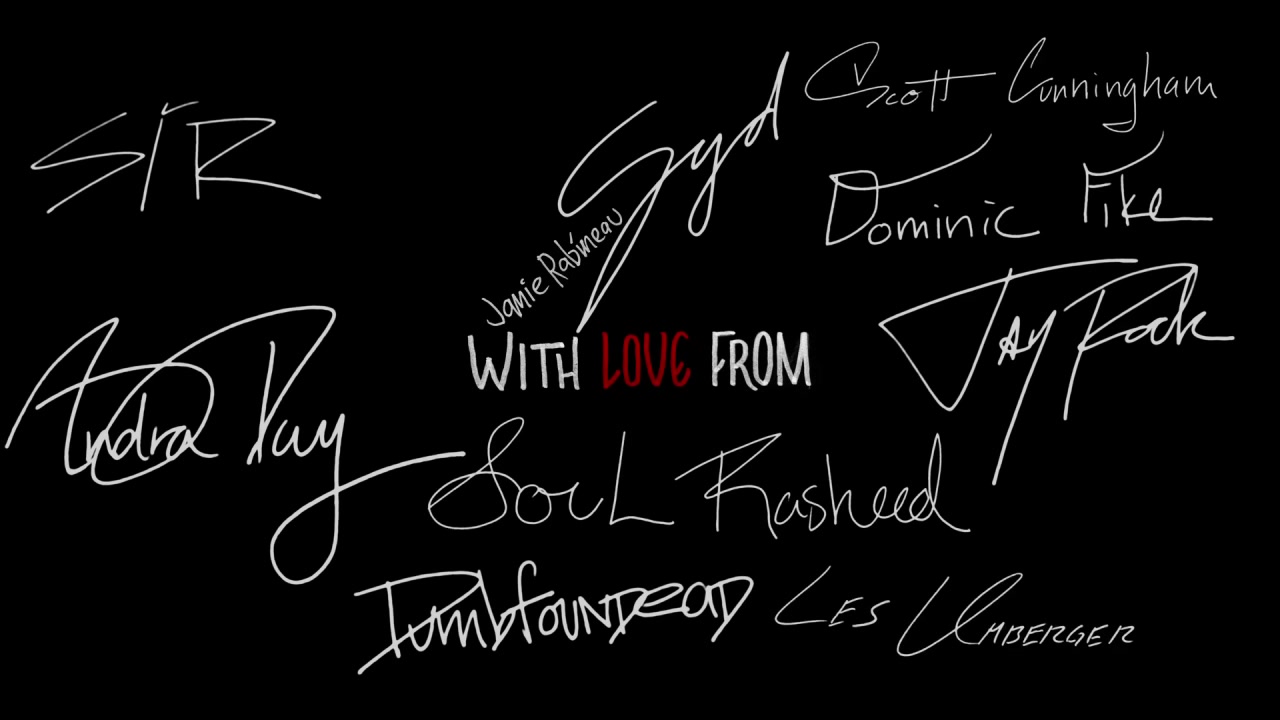 Scott Cunningham
SIR
Gyd
Dominic Fike
Jamie Rabineau
Jay Rock
WITH LOVE FROM
Andra Day
Soul Rasheed
DumbfounDEAD
LES UMBERGER